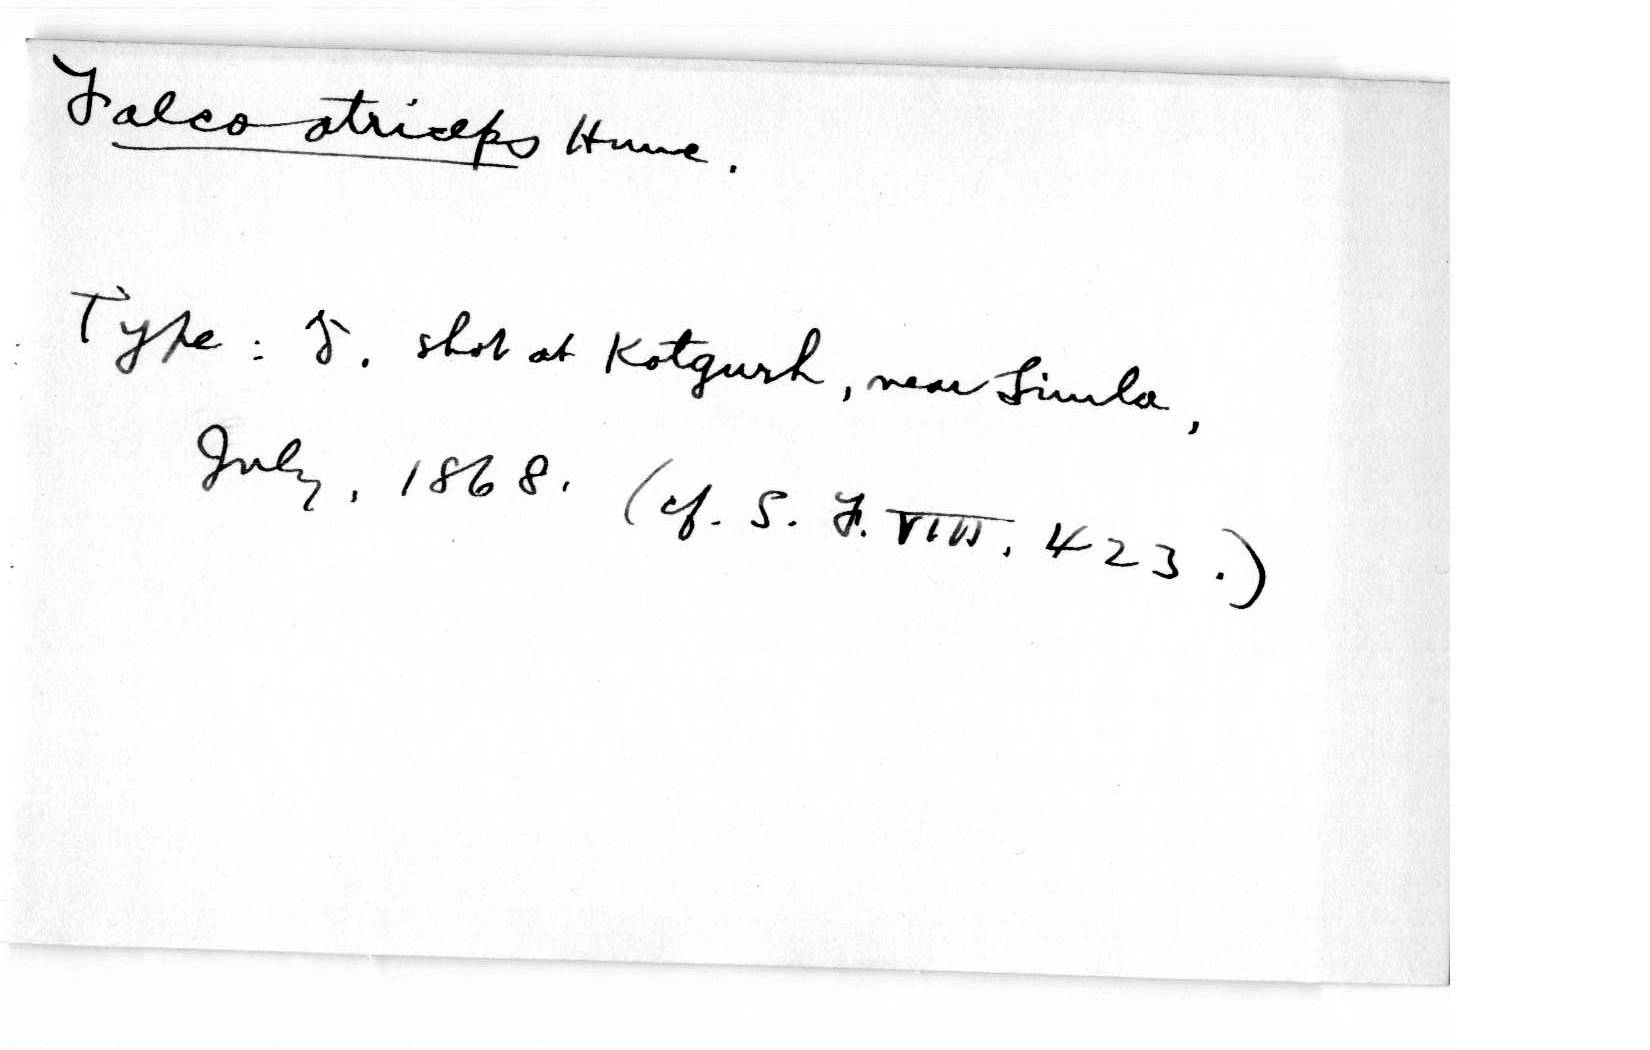 Falco atriceps Hume.
Type: ♂. shot at Kotgurh, near Simla,
July, 1868. (cf. S. F. VIII, 423.)